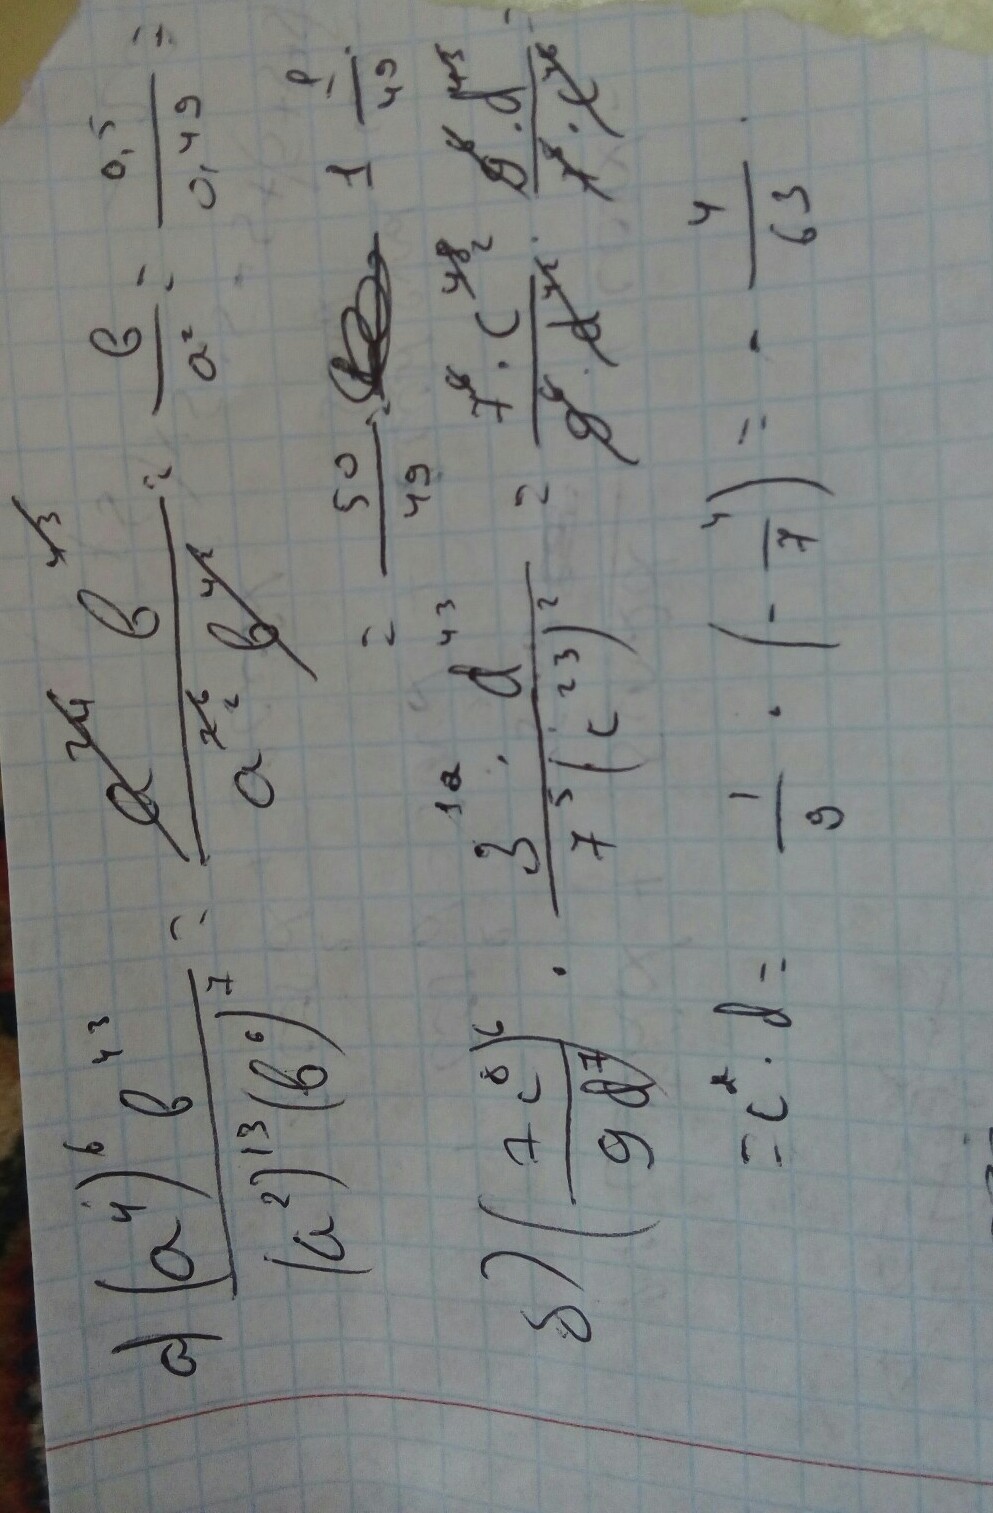 а) (a⁴)⁶ b⁴³ / (a²)¹³ (b⁶)⁷ = a²⁴ b⁴³ / a²⁶ b⁴² = b / a² = 0,5 / 0,49 =
= 50 / 49 = 1 1 / 49
б) (7c⁸ / 9d⁷)⁶ · 3¹² · d⁴³ / 7⁵ (c²³)² = 7⁶ · c⁴⁸ / 9⁶ · d⁴² · 9⁶ · d⁴³ / 7⁵ · c⁴⁶ =
= c² · d = 1 / 9 · (- 4 / 7) = - 4 / 63 .